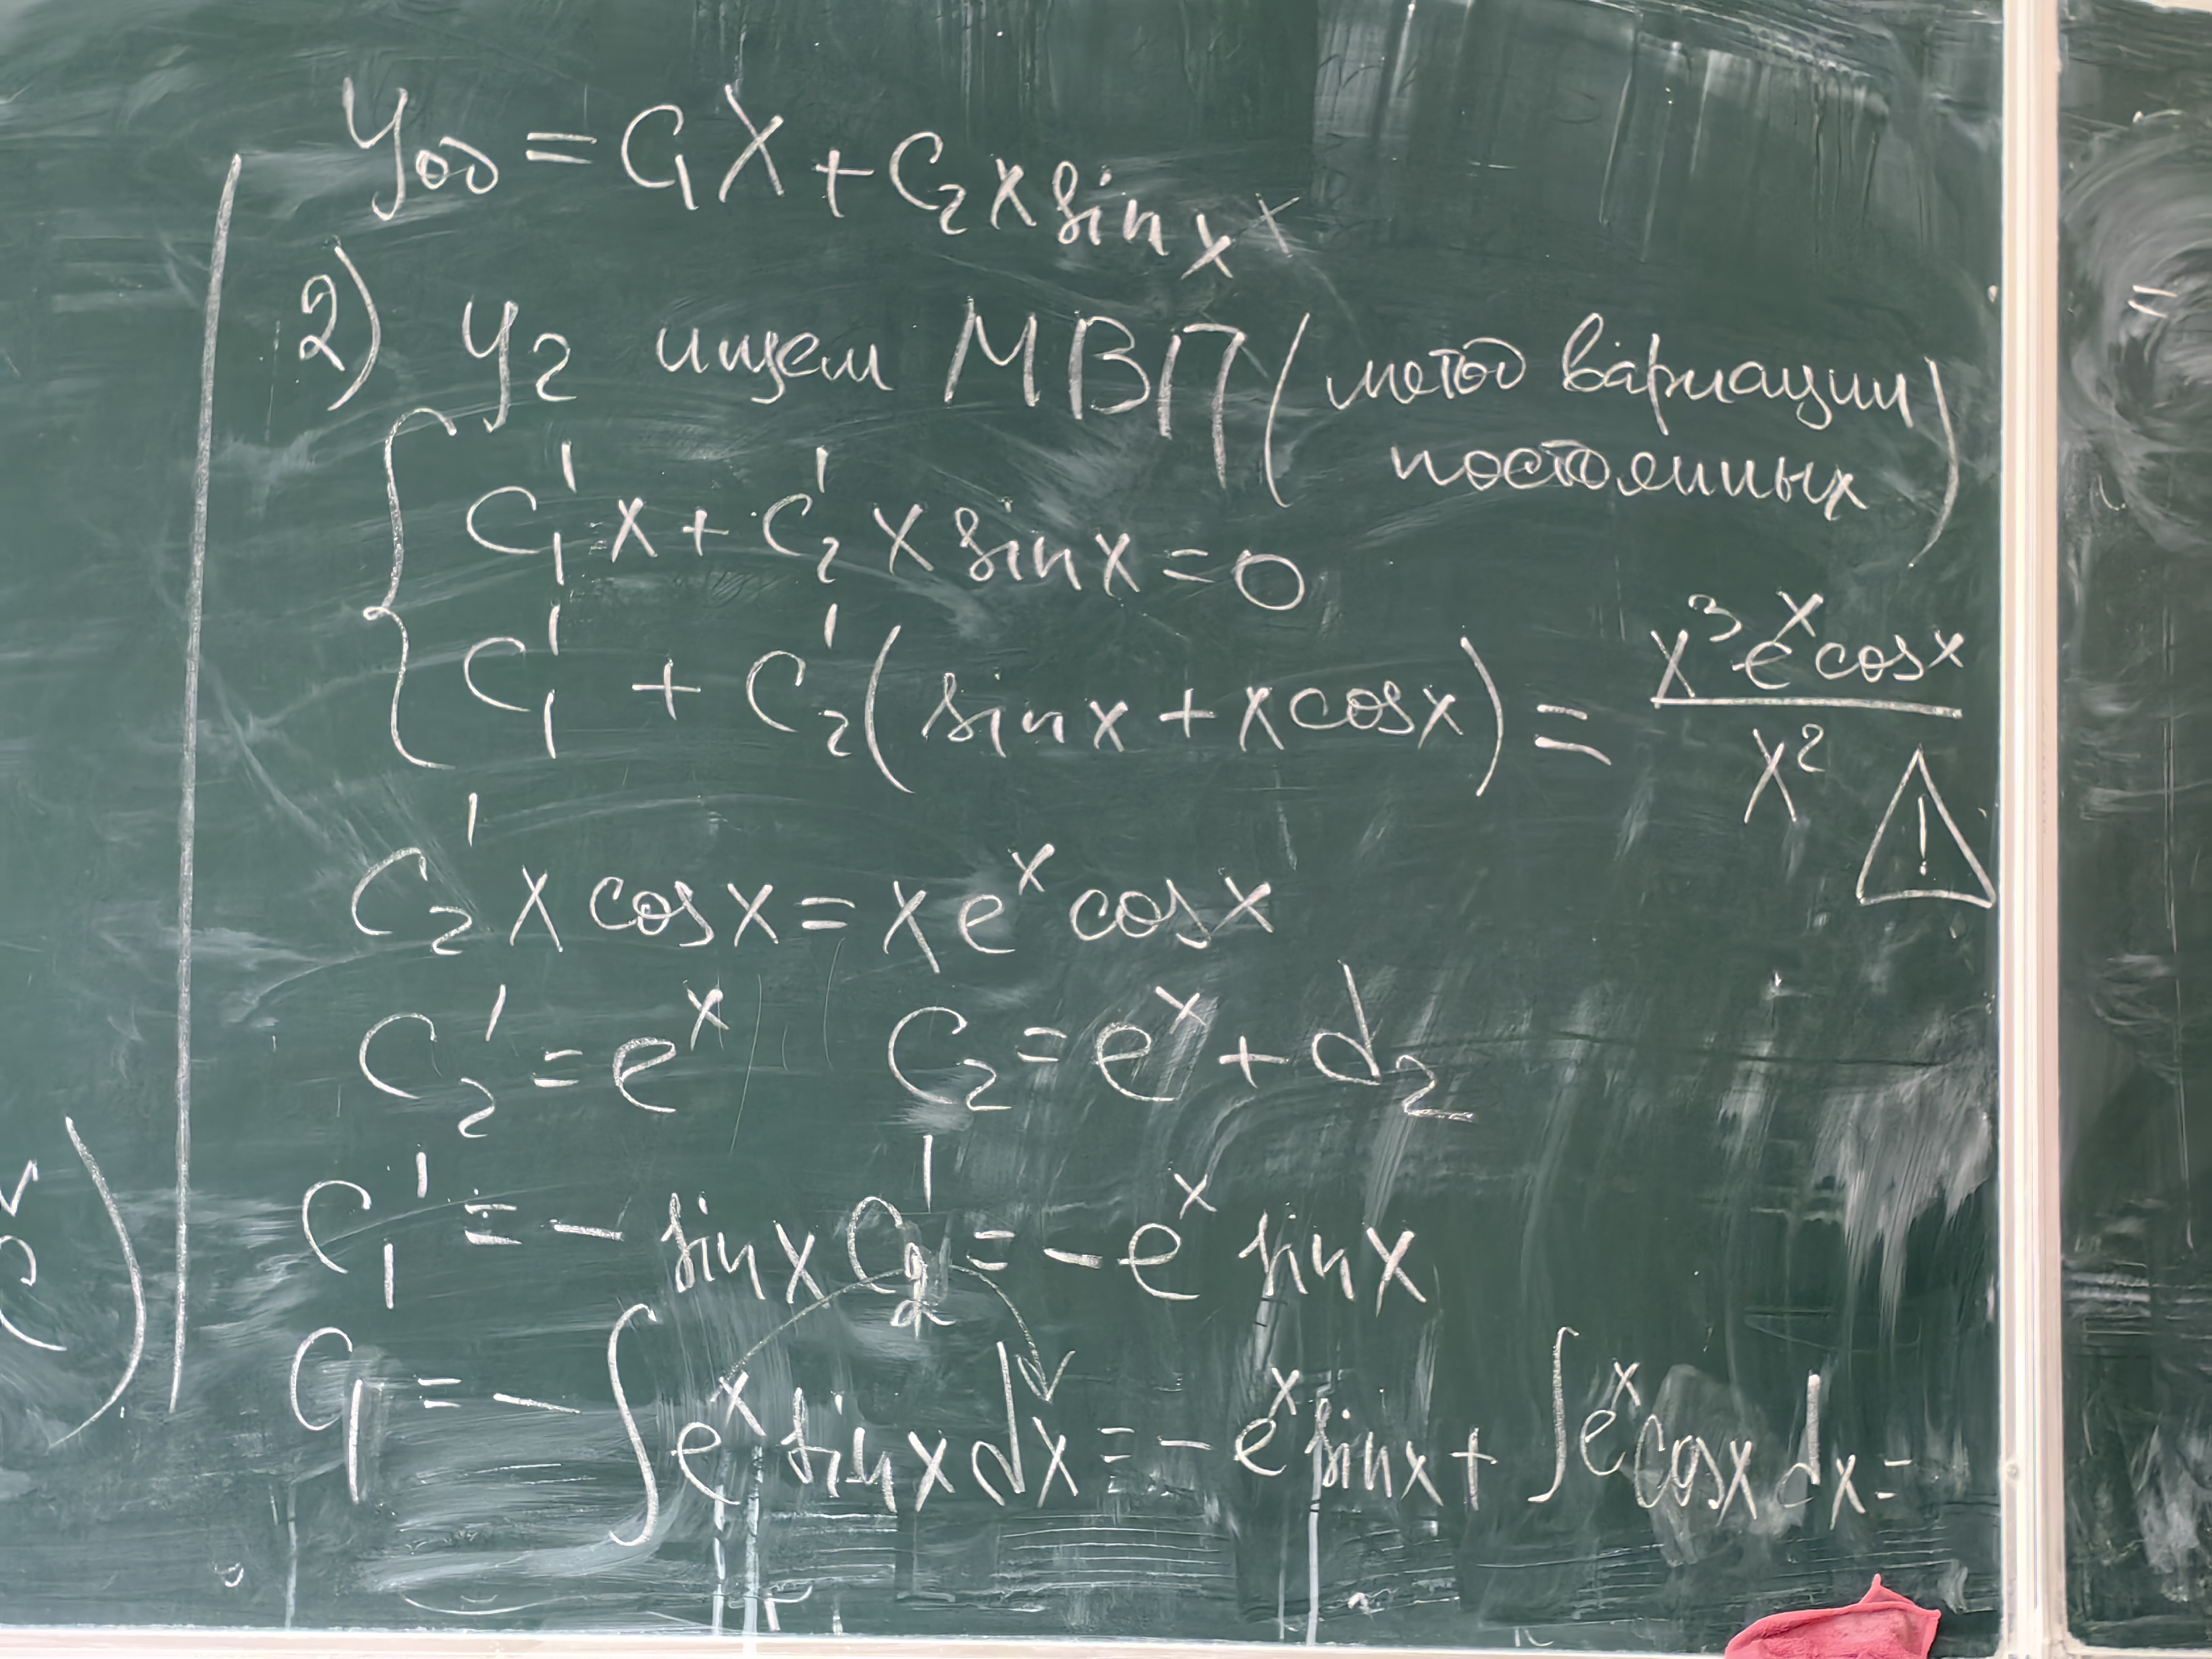 y₀₀ = C₁x + C₂ x sin x
2) y₂ ищем МВП (метод вариации
постоянных)
{ C₁' x + C₂' x sin x = 0
C₁' + C₂' (sin x + x cos x) = x³ eˣ cos x / x² ⚠
C₂' x cos x = x eˣ cos x
C₂' = eˣ C₂ = eˣ + d₂
C₁' = - sin x C₂' = - eˣ sin x
C₁ = - ∫ eˣ sin x dx = - eˣ sin x + ∫ eˣ cos x dx =
=